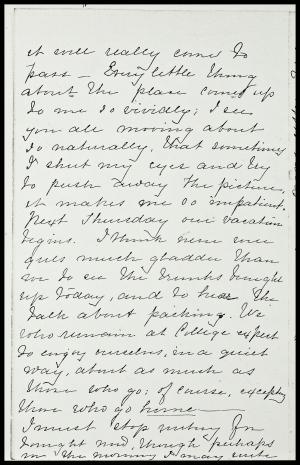 it will really come to
pass – Every little thing
about the place comes up
to me so vividly; I see
you all moving about
so naturally, that sometimes
I shut my eyes and try
to push away the picture,
it makes me so impatient.
Next Thursday our vacation
begins. I think never were
girls much gladder than
we to see the trunks brought
up today, and to hear the
talk about packing. We
who remain at College expect
to enjoy ourselves, in a quiet
way, about as much as
those who go; of course, excepting
those who go home –
I must stop writing for
tonight now, though perhaps
in the morning I may write